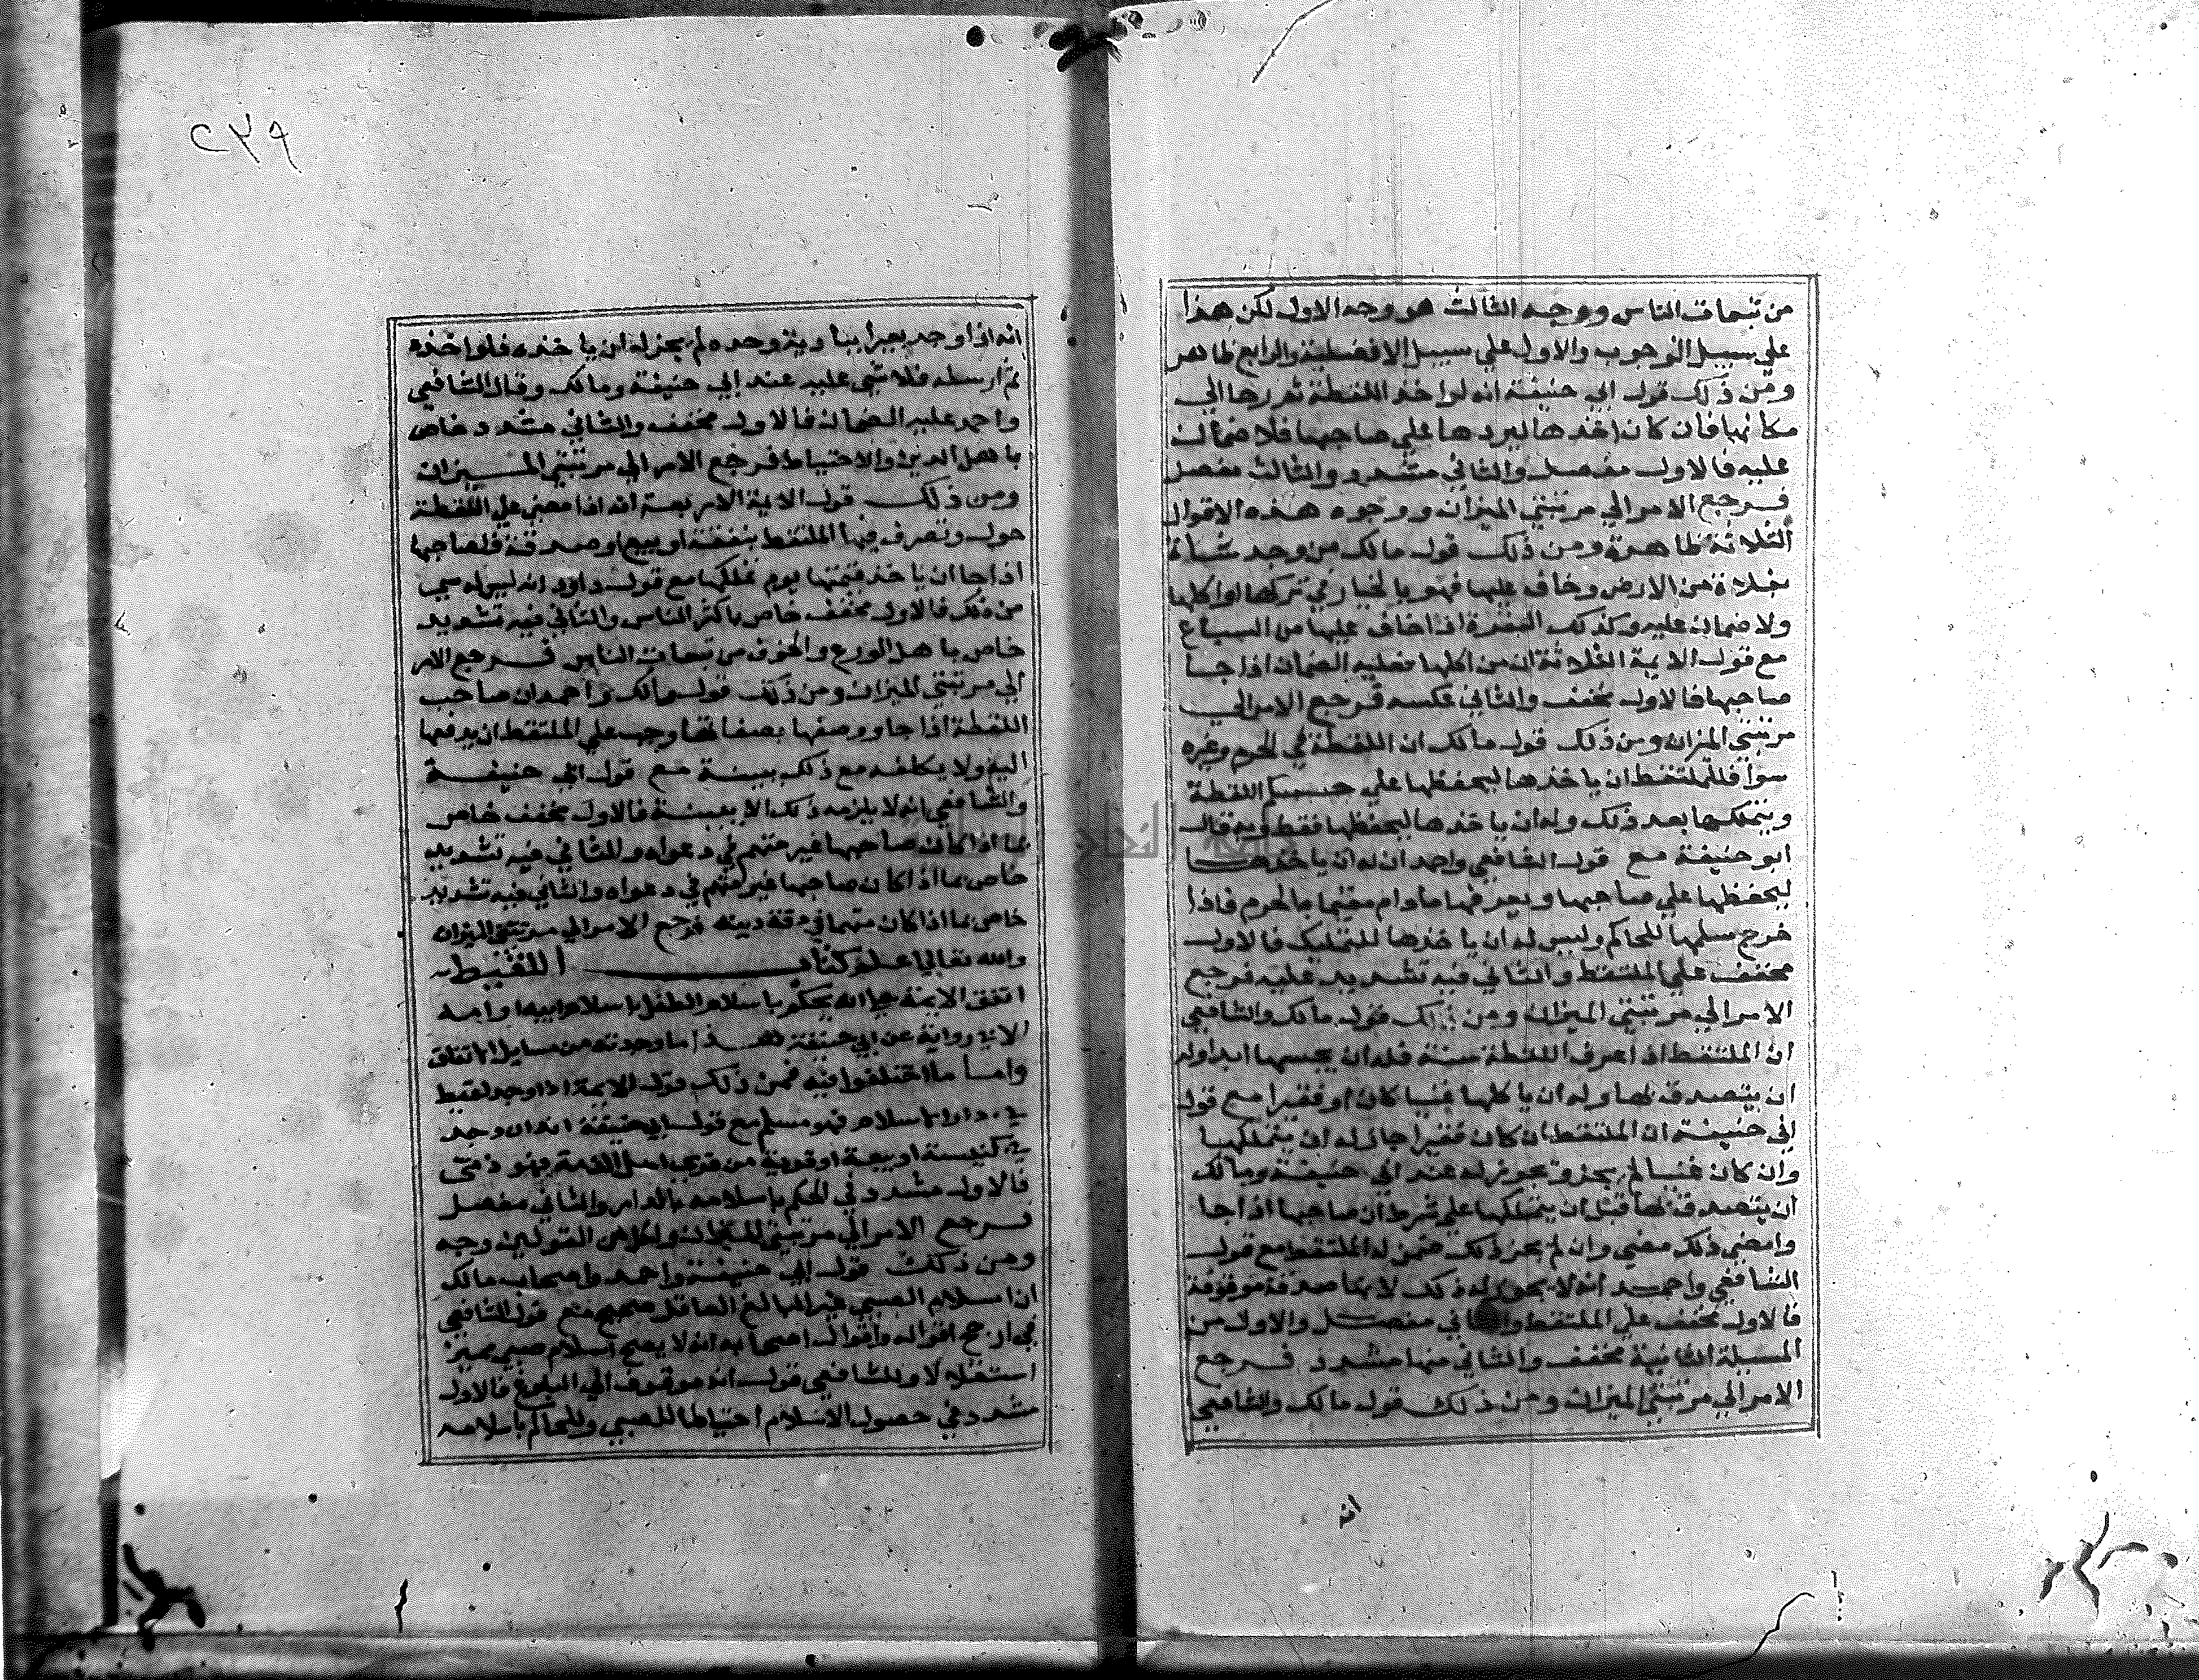 من تبعات الناس ووجه الثالث هو وجه الاول لكن هذا
علي سبيل الوجوب والاول علي سبيل الافضلية والرابع ظاهر
ومن ذلك قول ابي حنيفة انه لو اخذ اللقطة ثم ردها الي
مكانها فان كان اخذها ليردها علي صاحبها فلا ضمان
عليه فالاول مفصل والثاني مشدد والثالث مفصل
فرجع الامر الي مرتبتي الميزان ووجوه هذه الاقوال
الثلاثة ظاهرة ومن ذلك قول مالك من وجد شاة
بفلاة من الارض وخاف عليها فهو بالخيار في تركها او اكلها
ولا ضمان عليه وكذلك البقرة اذا خاف عليها من السباع
مع قول الايمة الثلاثة ان من اكلها فعليه الضمان اذا جا
صاحبها فالاول مخفف والثاني عكسه فرجع الامر الي
مرتبتي الميزان ومن ذلك قول مالك ان اللقطة في الحرم وغيره
سوا فللملتقط ان ياخذها ليحفظها علي حكم اللقطة
ويتملكها بعد ذلك وله ان ياخذها ليحفظها فقط وبه قال
ابو حنيفة مع قول الشافعي واحمد ان له ان ياخذها
ليحفظها علي صاحبها ويعرفها مادام مقيما بالحرم فاذا
خرج سلمها للحاكم وليس له ان ياخذها للتمليك فالاول
مخفف علي الملتقط والثاني فيه تشديد عليه فرجع
الامر الي مرتبتي الميزان ومن ذلك قول مالك والشافعي
ان الملتقط اذا عرف اللقطة سنة فله ان يحبسها ابدا وله
ان يتصدق بها وله ان ياكلها غنيا كان او فقيرا مع قول
ابي حنيفة ان الملتقط ان كان فقيرا جاز له ان يتملكها
وان كان غنيا لم يجز ويجوز له عند ابي حنيفة ومالك
ان يتصدق بها قبل ان يتملكها علي شرط ان صاحبها اذا جا
وامضي ذلك مضي وان لم يجز ذلك ضمن له الملتقط مع قول
الشافعي واحمد انه لا يجوز له ذلك لانها صدقة موقوفة
فالاول مخفف علي الملتقط والثاني مفصل والاول من
المسيلة الثانية مخفف والثاني منها مشدد فرجع
الامر الي مرتبتي الميزان ومن ذلك قول مالك والشافعي
انه
٢٣٩
انه اذا وجد بعيرا ببادية وحده لم يجز له ان ياخذه فلو اخذه
ثم ارسله فلا شي عليه عند ابي حنيفة ومالك وقال الشافعي
واحمد عليه الضمان فالاول مخفف والثاني مشدد خاص
باهل الدين والاحتياط فرجع الامر الي مرتبتي الميزان
ومن ذلك قول الايمة الاربعة انه اذا مضي علي اللقطة
حول وتصرف فيها الملتقط بنفقة او بيع او صدقة فلصاحبها
اذا جا ان ياخذ قيمتها يوم تملكها مع قول داود انه ليس له شي
من ذلك فالاول مخفف خاص باكثر الناس والثاني فيه تشديد
خاص باهل الورع والخوف من تبعات الناس فرجع الامر
الي مرتبتي الميزان ومن ذلك قول مالك واحمد ان صاحب
اللقطة اذا جا ووصفها بصفاتها وجب علي الملتقط ان يدفعها
اليه ولا يكلفه مع ذلك ببينة مع قول ابي حنيفة
والشافعي انه لا يلزمه ذلك الا ببينة فالاول مخفف خاص
بما اذا كان صاحبها غير متهم في دعواه والثاني فيه تشديد
خاص بما اذا كان صاحبها غير متهم في دعواه والثاني فيه تشديد
خاص بما اذا كان متهما في رقة دينه فرجع الامر الي مرتبتي الميزان
والله تعالي اعلم كتاب اللقيط
اتفق الايمة علي انه يحكم باسلام الطفل باسلام ابيه او امه
الا في رواية عن ابي حنيفة هذا ما وجدته من مسايل الاتفاق
واما ما اختلفوا فيه فمن ذلك قول الايمة اذا وجد لقيط
في دار الاسلام فهو مسلم مع قول ابي حنيفة انه ان وجد
في كنيسة او بيعة او قرية من قري اهل الذمة فهو ذمي
فالاول مشدد في الحكم باسلامه بالدار والثاني مفصل
فرجع الامر الي مرتبتي الميزان ولكل من القولين وجه
ومن ذلك قول ابي حنيفة واحمد واصحاب مالك
ان اسلام الصبي غير البالغ العاقل صحيح مع قول الشافعي
في ارجح اقواله واقوال اصحابه انه لا يصح اسلام صبي مميز
استقلالا وللشافعي قول انه موقوف الي البلوغ فالاول
مشدد في حصول الاسلام احتياطا للصبي وللحاكم باسلامه